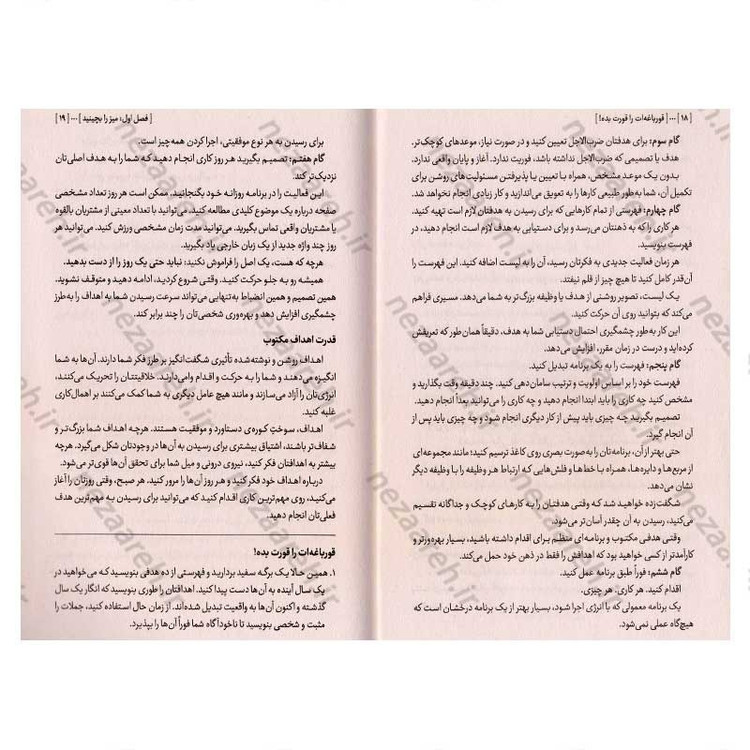 [ ۱۸ ] ... [ قورباغه‌ات را قورت بده! ]
گام سوم: برای هدفتان ضرب‌الاجل تعیین کنید و در صورت نیاز، موعدهای کوچک‌تر.
هدف یا تصمیمی که ضرب‌الاجل نداشته باشد، فوریت ندارد. آغاز و پایان واقعی ندارد.
بدون یک موعد مشخص، همراه با تعیین یا پذیرفتن مسئولیت‌های روشن برای
تکمیل آن، شما به‌طور طبیعی کارها را به تعویق می‌اندازید و کار زیادی انجام نخواهد شد.
گام چهارم: فهرستی از تمام کارهایی که برای رسیدن به هدفتان لازم است تهیه کنید.
هر کاری را که به ذهنتان می‌رسد و برای دستیابی به هدف لازم است انجام دهید، در
فهرست بنویسید.
هر زمان فعالیت جدیدی به فکرتان رسید، آن را به لیست اضافه کنید. این فهرست را
آن‌قدر کامل کنید تا هیچ چیز از قلم نیفتد.
یک لیست، تصویر روشنی از هدف یا وظیفه بزرگ‌تر به شما می‌دهد. مسیری فراهم
می‌کند که بتوانید روی آن حرکت کنید.
این کار به‌طور چشمگیری احتمال دستیابی شما به هدف، دقیقاً همان‌طور که تعریفش
کرده‌اید و درست در زمان مقرر، افزایش می‌دهد.
گام پنجم: فهرست را به یک برنامه تبدیل کنید.
فهرست خود را بر اساس اولویت و ترتیب سامان‌دهی کنید. چند دقیقه وقت بگذارید و
مشخص کنید چه کاری را باید ابتدا انجام دهید و چه کاری را می‌توانید بعداً انجام دهید.
تصمیم بگیرید چه چیزی باید پیش از کار دیگری انجام شود و چه چیزی باید پس از
آن انجام گیرد.
حتی بهتر از آن، برنامه‌تان را به‌صورت بصری روی کاغذ ترسیم کنید؛ مانند مجموعه‌ای
از مربع‌ها و دایره‌ها، همراه با خط‌ها و فلش‌هایی که ارتباط هر وظیفه را با وظیفه دیگر
نشان می‌دهد.
شگفت‌زده خواهید شد که وقتی هدفتان را به کارهای کوچک و جداگانه تقسیم
می‌کنید، رسیدن به آن چقدر آسان‌تر می‌شود.
وقتی هدفی مکتوب و برنامه‌ای منظم برای اقدام داشته باشید، بسیار بهره‌ورتر و
کارآمدتر از کسی خواهید بود که اهدافش را فقط در ذهن خود حمل می‌کند.
گام ششم: فوراً طبق برنامه عمل کنید.
اقدام کنید. هر کاری. هر چیزی.
یک برنامه معمولی که با انرژی اجرا شود، بسیار بهتر از یک برنامه درخشان است که
هیچ‌گاه عملی نمی‌شود.
[ فصل اول: میز را بچینید ] ... [ ۱۹ ]
برای رسیدن به هر نوع موفقیتی، اجرا کردن همه چیز است.
گام هفتم: تصمیم بگیرید هر روز کاری انجام دهید که شما را به هدف اصلی‌تان
نزدیک‌تر کند.
این فعالیت را در برنامه روزانه خود بگنجانید. ممکن است هر روز تعداد مشخصی
صفحه درباره یک موضوع کلیدی مطالعه کنید. می‌توانید با تعداد معینی از مشتریان بالقوه
یا مشتریان واقعی تماس بگیرید. می‌توانید مدت زمان مشخصی ورزش کنید. می‌توانید هر
روز چند واژه جدید از یک زبان خارجی یاد بگیرید.
هرچه که هست، یک اصل را فراموش نکنید: نباید حتی یک روز را از دست بدهید.
همیشه رو به جلو حرکت کنید. وقتی شروع کردید، ادامه دهید و متوقف نشوید.
همین تصمیم و همین انضباط به‌تنهایی می‌تواند سرعت رسیدن شما به اهداف را به‌طرز
چشمگیری افزایش دهد و بهره‌وری شخصی‌تان را چند برابر کند.
قدرت اهداف مکتوب
اهداف روشن و نوشته‌شده تأثیری شگفت‌انگیز بر طرز فکر شما دارند. آن‌ها به شما
انگیزه می‌دهند و شما را به حرکت و اقدام وامی‌دارند. خلاقیتتان را تحریک می‌کنند،
انرژی‌تان را آزاد می‌سازند و مانند هیچ عامل دیگری به شما کمک می‌کنند بر اهمال‌کاری
غلبه کنید.
اهداف، سوختِ کوره‌ی دستاورد و موفقیت هستند. هرچه اهداف شما بزرگ‌تر و
شفاف‌تر باشند، اشتیاق بیشتری برای رسیدن به آن‌ها در وجودتان شکل می‌گیرد. هرچه
بیشتر به اهدافتان فکر کنید، نیروی درونی و میل شما برای تحقق آن‌ها قوی‌تر می‌شود.
درباره اهداف خود فکر کنید و هر روز آن‌ها را مرور کنید. هر صبح، وقتی روزتان را آغاز
می‌کنید، روی مهم‌ترین کاری اقدام کنید که می‌توانید برای رسیدن به مهم‌ترین هدف
فعلی‌تان انجام دهید.
قورباغه‌ات را قورت بده!
۱. همین حالا یک برگه سفید بردارید و فهرستی از ده هدفی بنویسید که می‌خواهید در
یک سال آینده به آن‌ها دست پیدا کنید. اهدافتان را طوری بنویسید که انگار یک سال
گذشته و اکنون آن‌ها به واقعیت تبدیل شده‌اند. از زمان حال استفاده کنید، جملات را
مثبت و شخصی بنویسید تا ناخودآگاه شما فوراً آن‌ها را بپذیرد.
nezaareh.ir